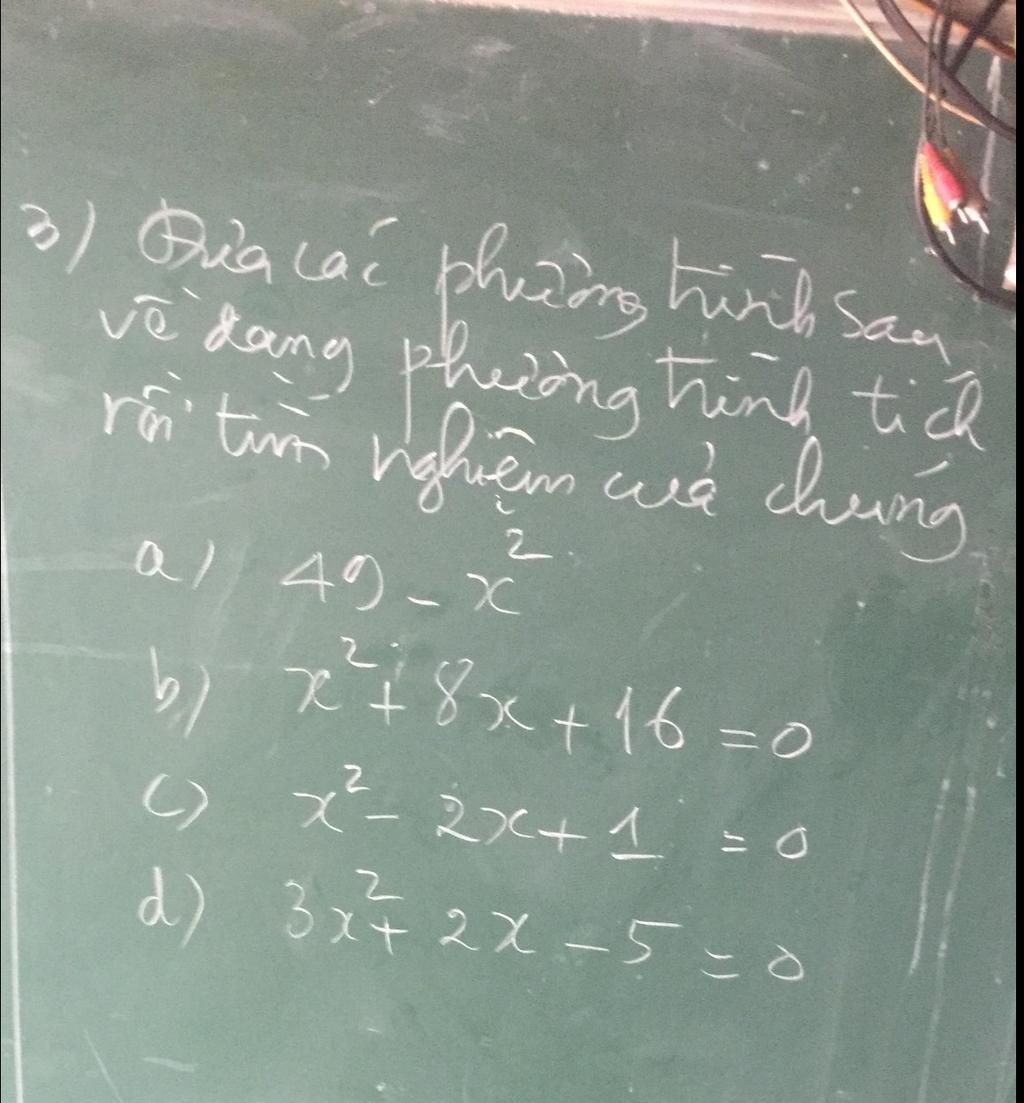 3) Đưa các phương trình sau
về dạng phương trình tích
rồi tìm nghiệm của chúng
a) 49 - x²
b) x² + 8x + 16 = 0
c) x² - 2x + 1 = 0
d) 3x² + 2x - 5 = 0